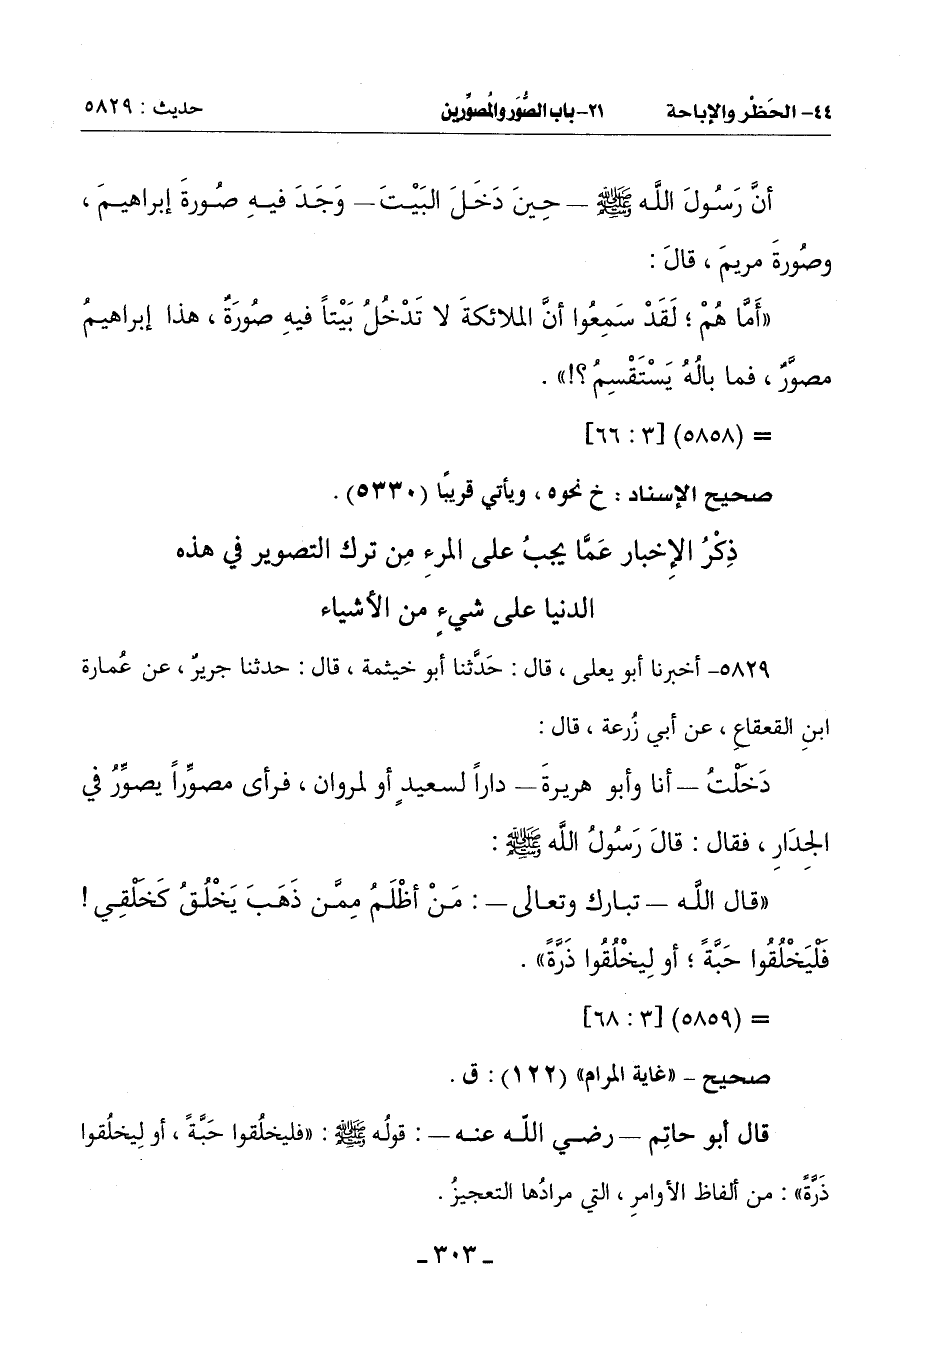 ٤٤- الحَظْر والإباحة ٢١- باب الصُّوَر والمُصوِّرين حديث : ٥٨٢٩
أنَّ رَسُولَ اللَّه ﷺ – حِينَ دَخَلَ البَيْتَ – وَجَدَ فيهِ صُورةَ إبراهيمَ ،
وصُورةَ مريمَ ، قالَ :
«أَمَّا هُمْ ؛ لَقَدْ سَمِعُوا أنَّ الملائكةَ لا تَدْخُلُ بَيْتاً فيهِ صُورَةٌ ، هذا إبراهيمُ
مصوَّرٌ ، فما بالُهُ يَسْتَقْسِمُ ؟!» .
= (٥٨٥٨) [٣ : ٦٦]
صحيح الإسناد : خ نحوه ، ويأتي قريبًا (٥٣٣٠) .
ذِكْرُ الإخبار عَمَّا يجبُ على المرءِ مِن ترك التصوير في هذه
الدنيا على شيءٍ من الأشياء
٥٨٢٩- أخبرنا أبو يعلى ، قال : حَدَّثنا أبو خيثمة ، قال : حدثنا جريرٌ ، عن عُمارة
ابنِ القعقاعِ ، عن أبي زُرعة ، قال :
دَخَلْتُ – أنا وأبو هريرةَ – داراً لسعيدٍ أو لمروان ، فرأى مصوِّراً يصوِّرُ في
الجِدَارِ ، فقال : قالَ رَسُولُ اللَّه ﷺ :
«قال اللَّه – تبارك وتعالى – : مَنْ أظْلَمُ مِمَّن ذَهَبَ يَخْلُقُ كَخَلْقِي !
فَلْيَخْلُقُوا حَبَّةً ؛ أو لِيخْلُقُوا ذَرَّةً» .
= (٥٨٥٩) [٣ : ٦٨]
صحيح – «غاية المرام» (١٢٢) : ق .
قال أبو حاتِم – رضي اللَّه عنه – : قولُه ﷺ : «فليخلُقوا حَبَّةً ، أو لِيخلُقوا
ذَرَّةً» : من ألفاظ الأوامرِ ، التي مرادُها التعجيزُ .
– ٣٠٣ –